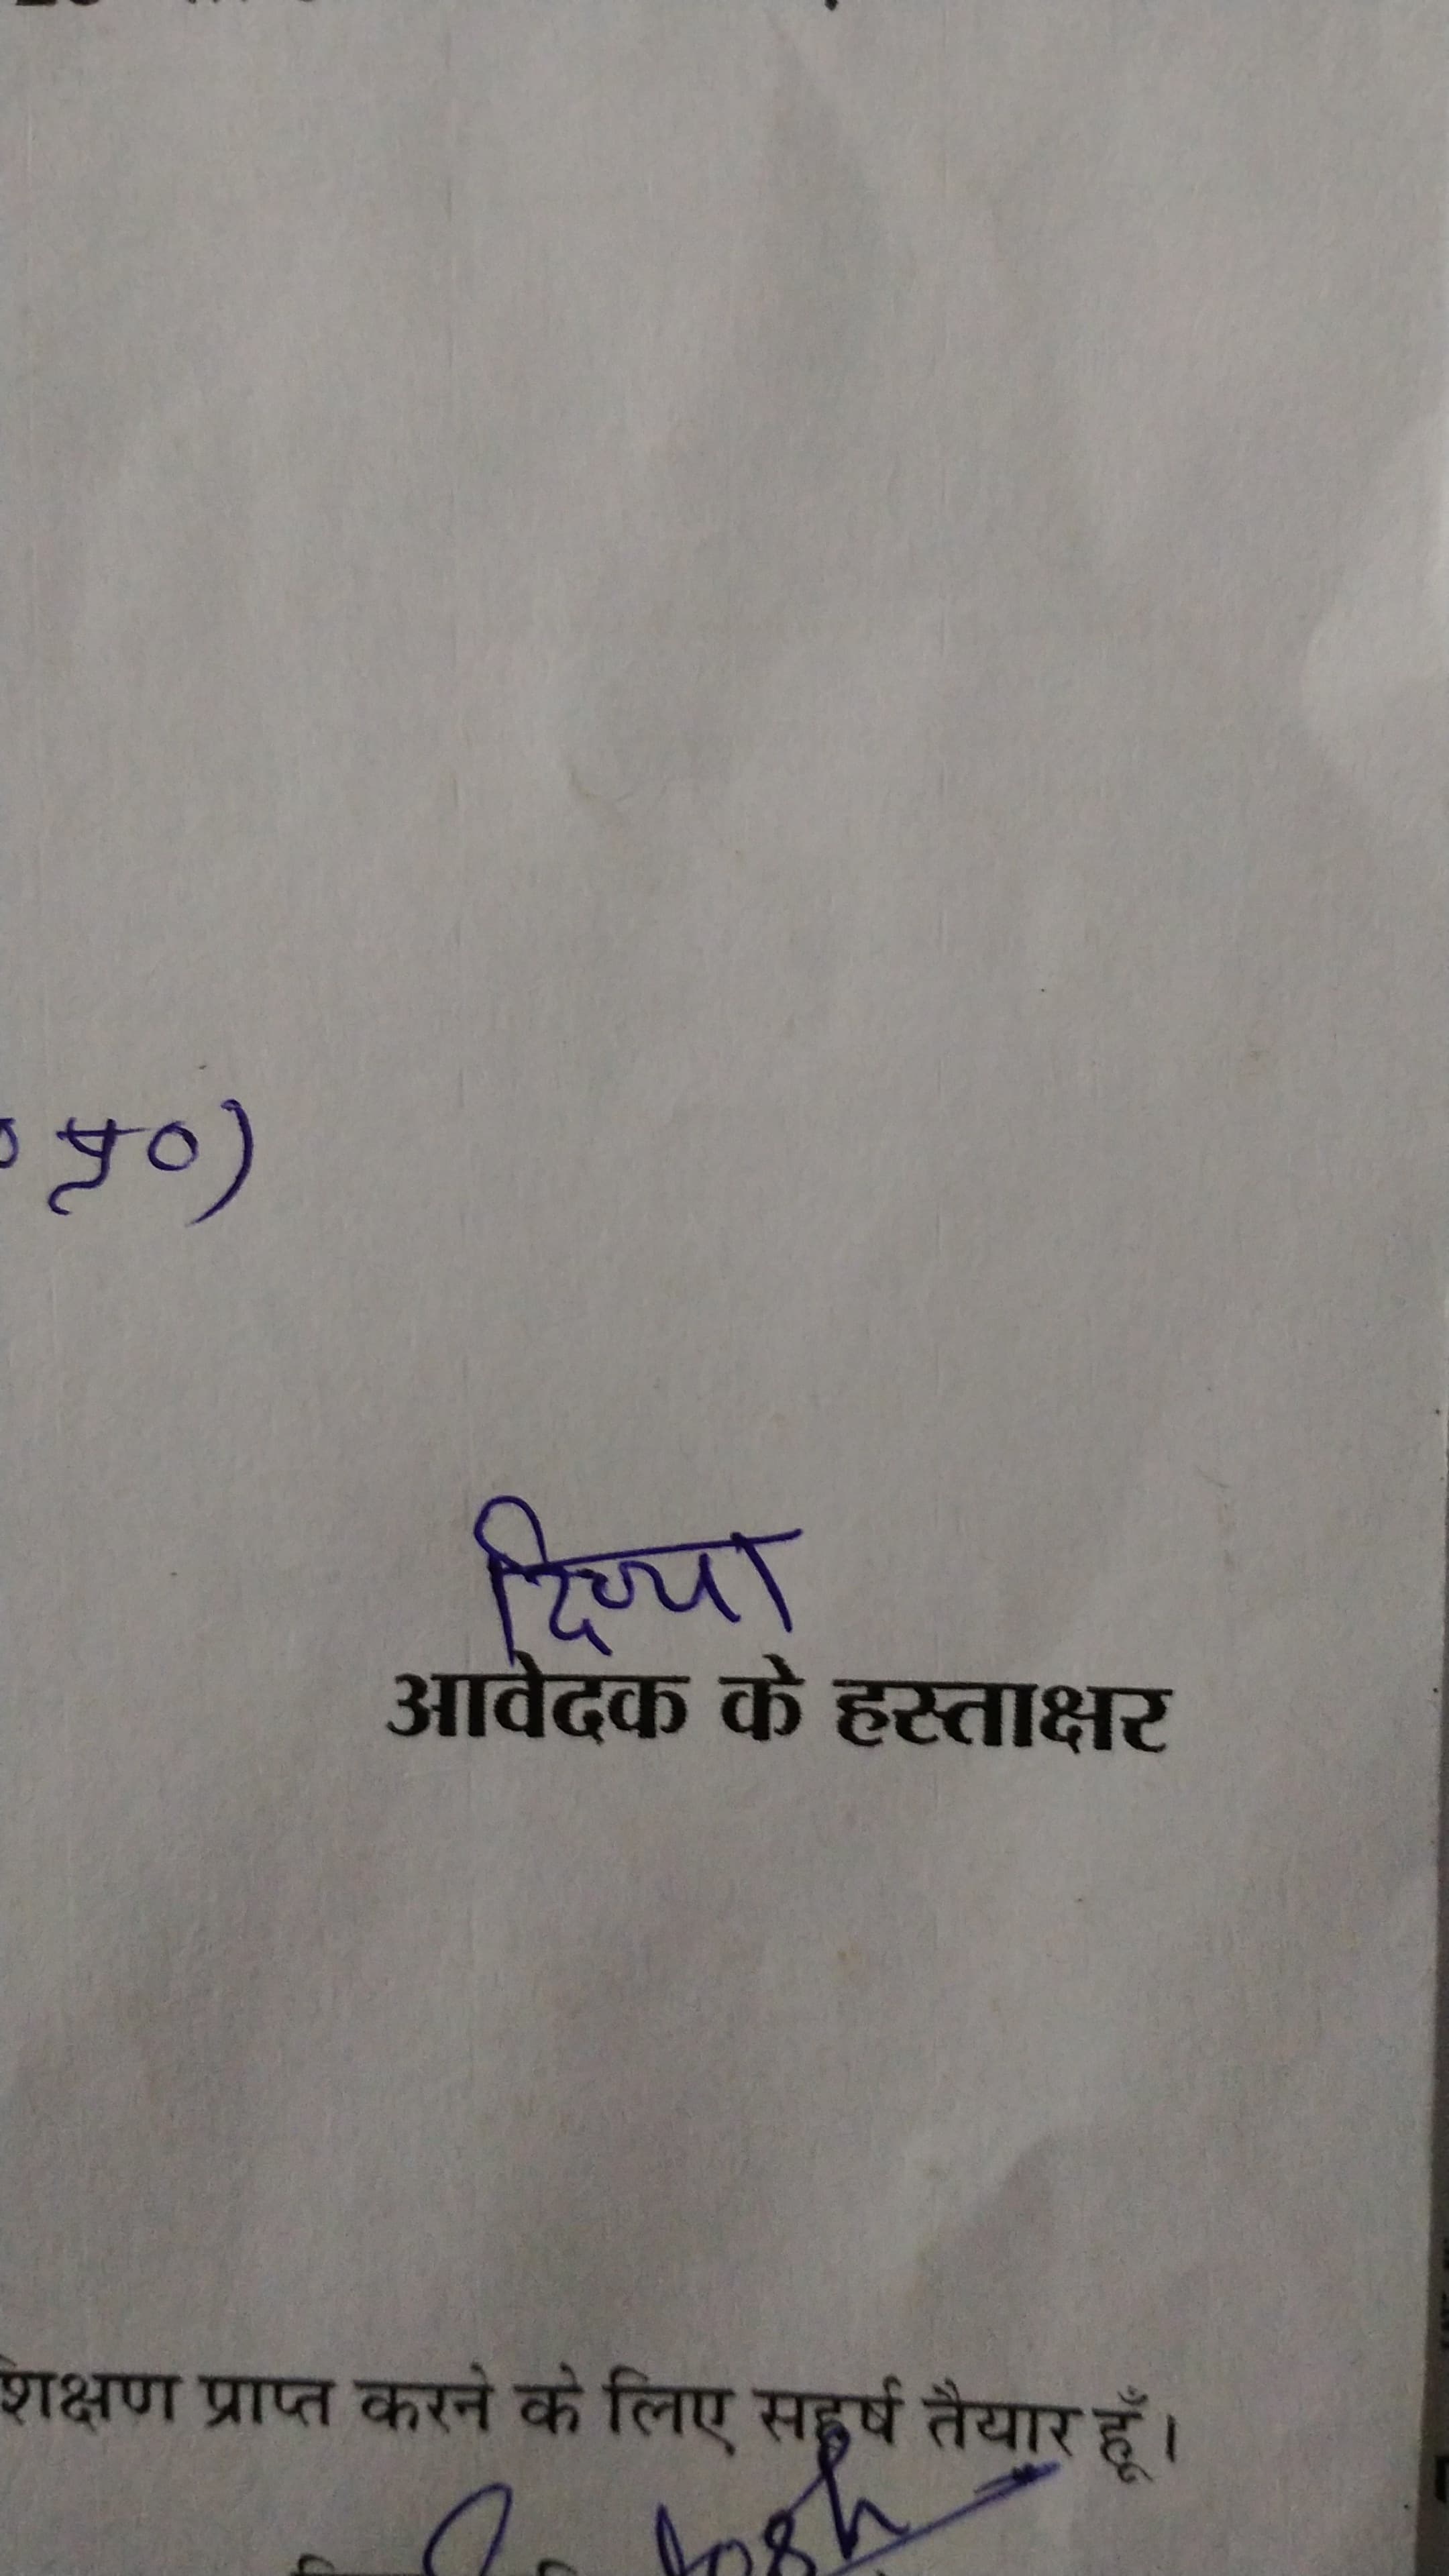 प्र०)
दिव्या
आवेदक के हस्ताक्षर
शिक्षण प्राप्त करने के लिए सहर्ष तैयार हूँ।